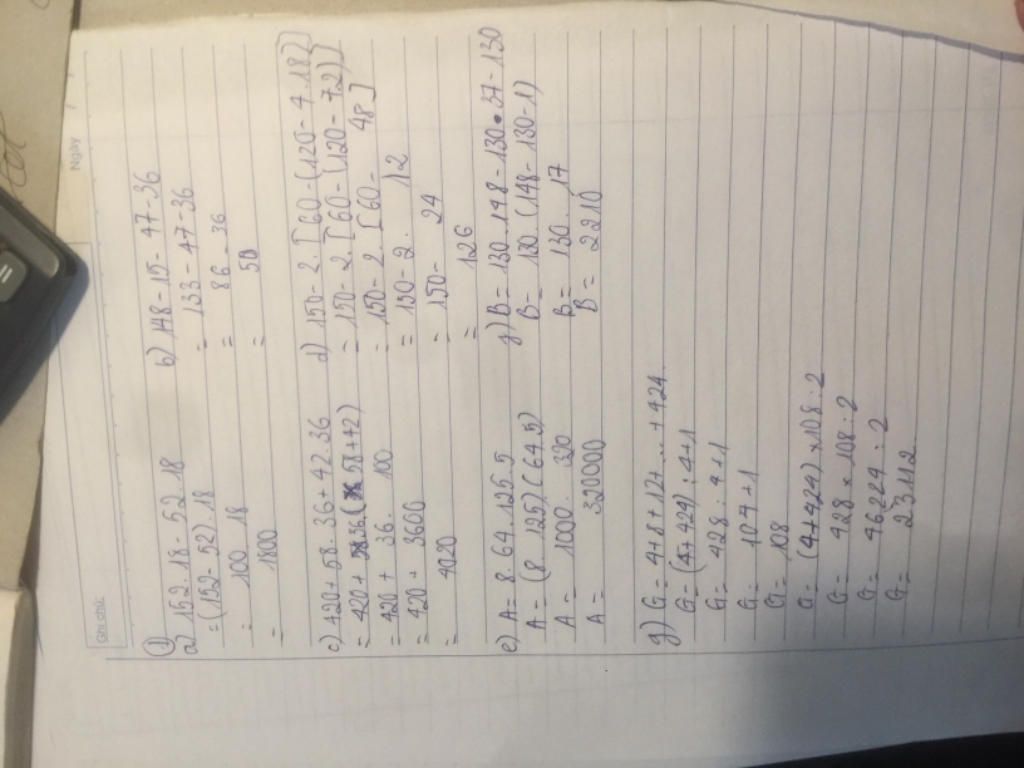 Ngày
Ghi chú:
1)
a) 152.18 - 52.18
= (152 - 52).18
= 100 . 18
= 1800
b) 148 - 15 - 47 - 36
= 133 - 47 - 36
= 86 - 36
= 50
c) 420 + 58.36 + 42.36
= 420 + 36.( 58 + 42)
= 420 + 36. 100
= 420 + 3600
= 4020
d) 150 - 2.[60 - (120 - 4.18)]
= 150 - 2.[60 - (120 - 72)]
= 150 - 2.[60 - 48]
= 150 - 2. 12
= 150 - 24
= 126
e) A = 8.64.125.5
A = (8.125)(64.5)
A = 1000. 320
A = 320000
f) B = 130.148 - 130.37 - 130
B = 130.(148 - 130 - 1)
B = 130. 17
B = 2210
g) G = 4 + 8 + 12 + ... + 424
G = (4 + 424) : 4 + 1
G = 428 : 4 + 1
G = 107 + 1
G = 108
G = (4 + 424) x 108 : 2
G = 428 x 108 : 2
G = 46224 : 2
G = 23112
=